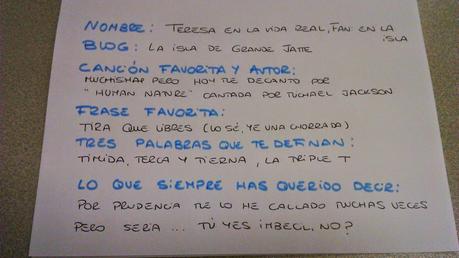 NOMBRE: TERESA EN LA VIDA REAL, FANI EN LA ISLA
BLOG: LA ISLA DE GRANDE JATTE
CANCIÓN FAVORITA Y AUTOR:
MUCHISMAS PERO HOY ME DECANTO POR
"HUMAN NATURE" CANTADA POR MICHAEL JACKSON
FRASE FAVORITA:
TIRA QUE LIBRES (LO SÉ, YE UNA CHORRADA)
TRES PALABRAS QUE TE DEFINAN:
TÍMIDA, TERCA Y TIERNA, LA TRIPLE T
LO QUE SIEMPRE HAS QUERIDO DECIR:
POR PRUDENCIA ME LO HE CALLADO MUCHAS VECES
PERO SERÍA... TÚ YES IMBECIL, NO?